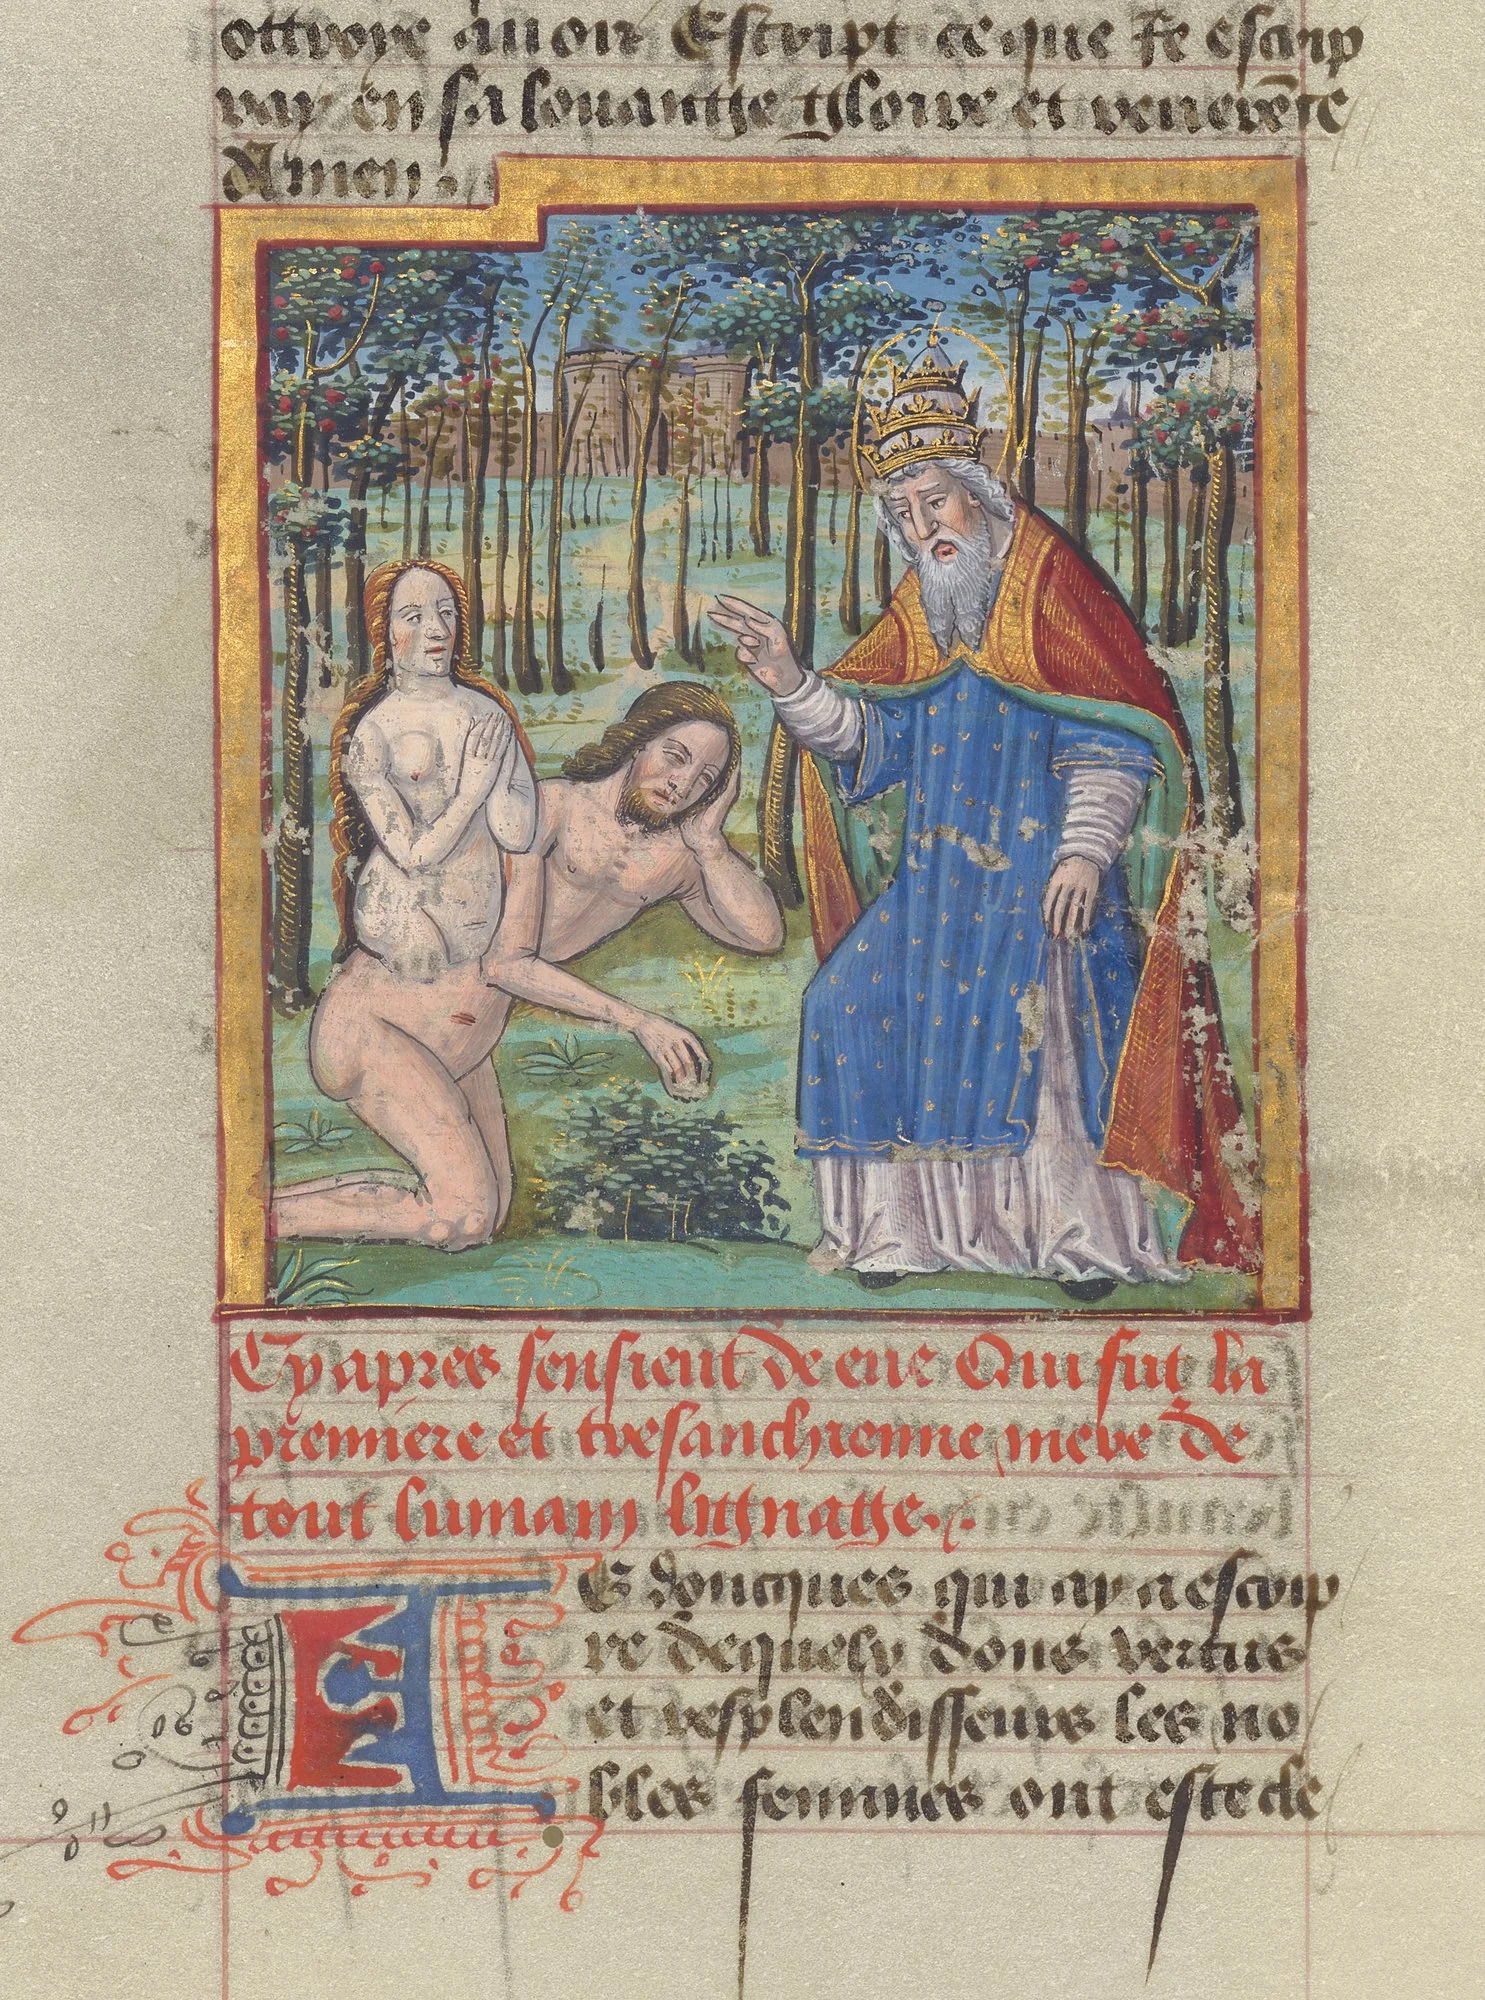 ottroye auoir Escript ce que Je escrip
ray en sa louantge tgloire et reuerēce
Amen.
Cy apres sensieut de eue Qui fut la
premiere et tresanchienne mere de
tout lumain lignatge.
IE doncques qui ay a escrip
re de quelz dons vertus
et resplendisseurs les no
bles femmes ont este de